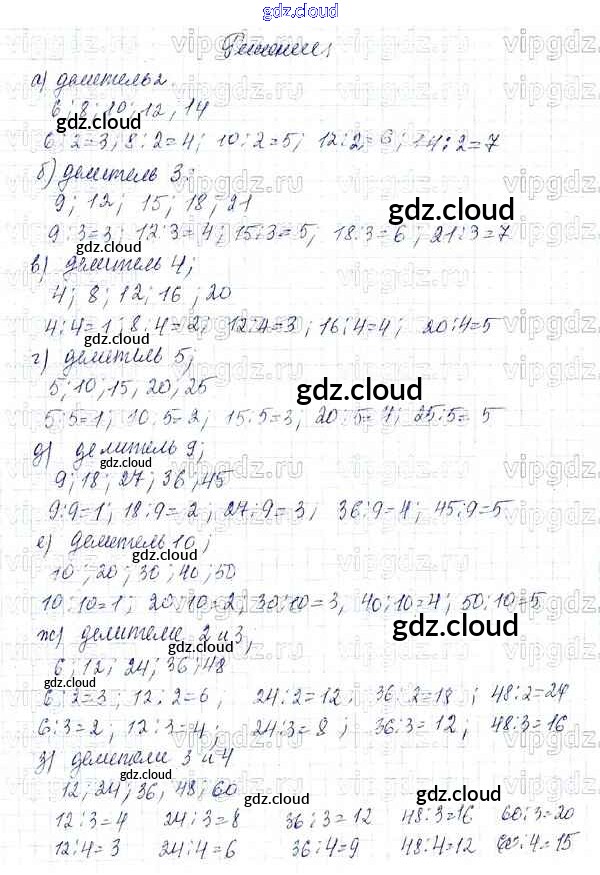 gdz.cloud
Решение
а) делитель 2.
6; 8; 10; 12; 14
6:2=3; 8:2=4; 10:2=5; 12:2=6; 14:2=7
б) делитель 3:
9; 12; 15; 18; 21
9:3=3; 12:3=4; 15:3=5, 18:3=6; 21:3=7
в) делитель 4;
4; 8; 12; 16; 20
4:4=1; 8:4=2; 12:4=3; 16:4=4; 20:4=5
г) делитель 5;
5; 10; 15, 20; 25
5:5=1; 10:5=2; 15:5=3; 20:5=4; 25:5=5
д) делитель 9;
9; 18; 27; 36; 45
9:9=1; 18:9=2; 27:9=3; 36:9=4; 45:9=5
е) делитель 10;
10; 20; 30; 40; 50
10:10=1; 20:10=2; 30:10=3, 40:10=4; 50:10=5
ж) делители 2 и 3;
6; 12; 24; 36; 48
6:2=3; 12:2=6, 24:2=12; 36:2=18; 48:2=24
6:3=2; 12:3=4; 24:3=8; 36:3=12; 48:3=16
з) делители 3 и 4
12; 24; 36, 48; 60
12:3=4 24:3=8 36:3=12 48:3=16 60:3=20
12:4=3 24:4=6 36:4=9 48:4=12 60:4=15